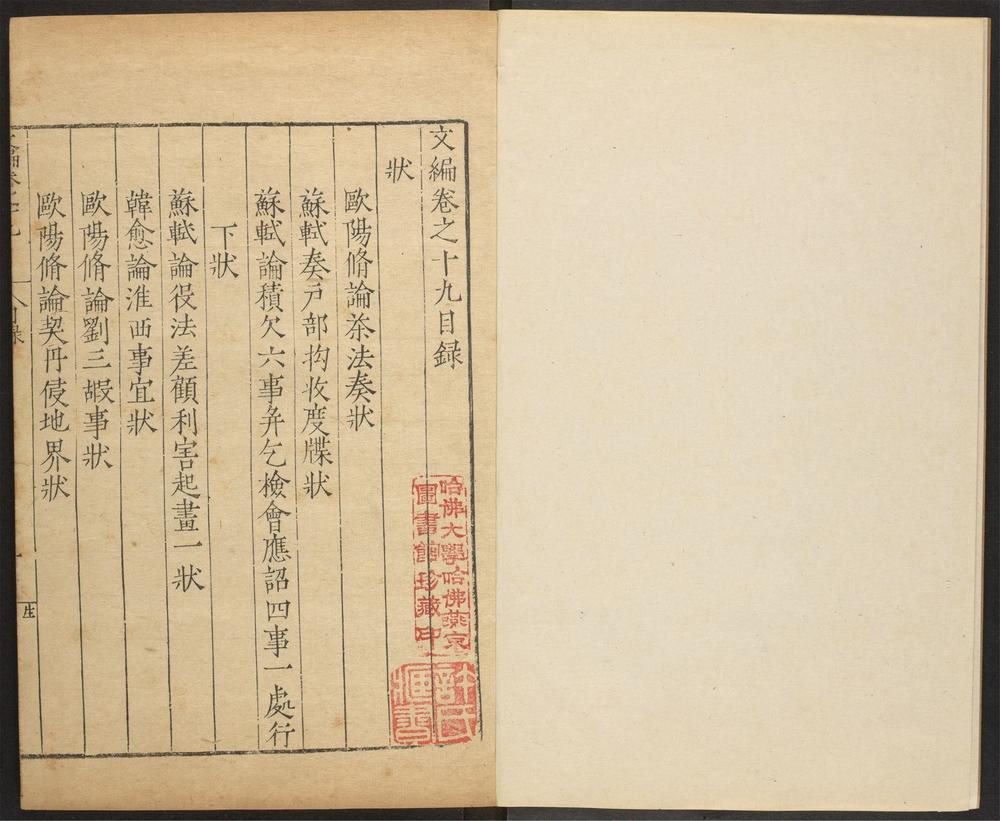 文編卷之十九目録
狀
歐陽脩論茶法奏狀
蘇軾奏戶部拘收度牒狀
蘇軾論積欠六事并乞檢會應詔四事一處行
下狀
蘇軾論役法差顧利害起畫一狀
韓愈論淮西事宜狀
歐陽脩論劉三嘏事狀
歐陽脩論契丹侵地界狀
哈佛大學哈佛燕京
圖書館珍藏印